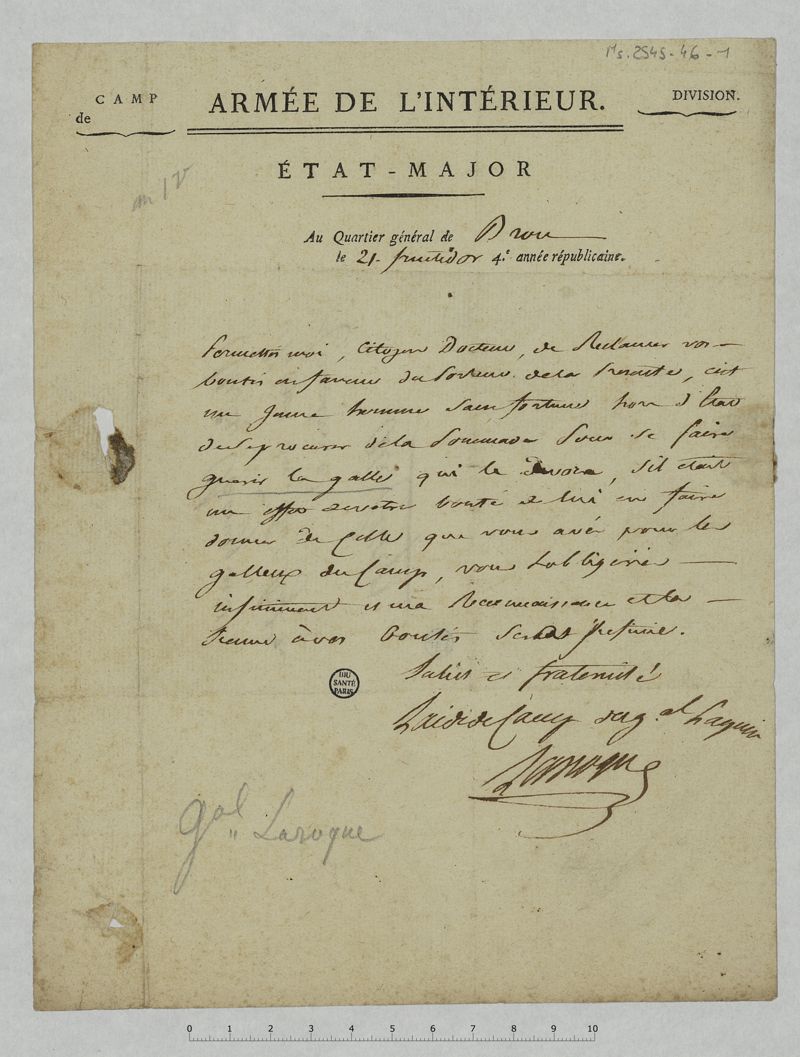 Ms. 2545-46-1
CAMP
de
ARMÉE DE L'INTÉRIEUR.
DIVISION.
ÉTAT-MAJOR
an IV
Au Quartier général de
le 21 fructidor 4.e année républicaine.
Permettes moi, Citoyen Docteur, de Reclamer vos
bontés en faveur du Porteur de la Presente, c'est
un Jeune homme sans fortune hors d'Etat
de se procurer de la Pommade Pour se faire
guerir la galle qui le devore, s'il était
un effet de votre bonté de lui en faire
donner de Celle que vous avés pour les
galleux du Camp, vous l'obligeriés
infiniment et ma Reconnaissance et la
Sienne à vos bontés
Salut et fraternité
L'aide de Camp du g.al
Laroque
BIU
SANTÉ
PARIS
Gal Laroque
0 1 2 3 4 5 6 7 8 9 10